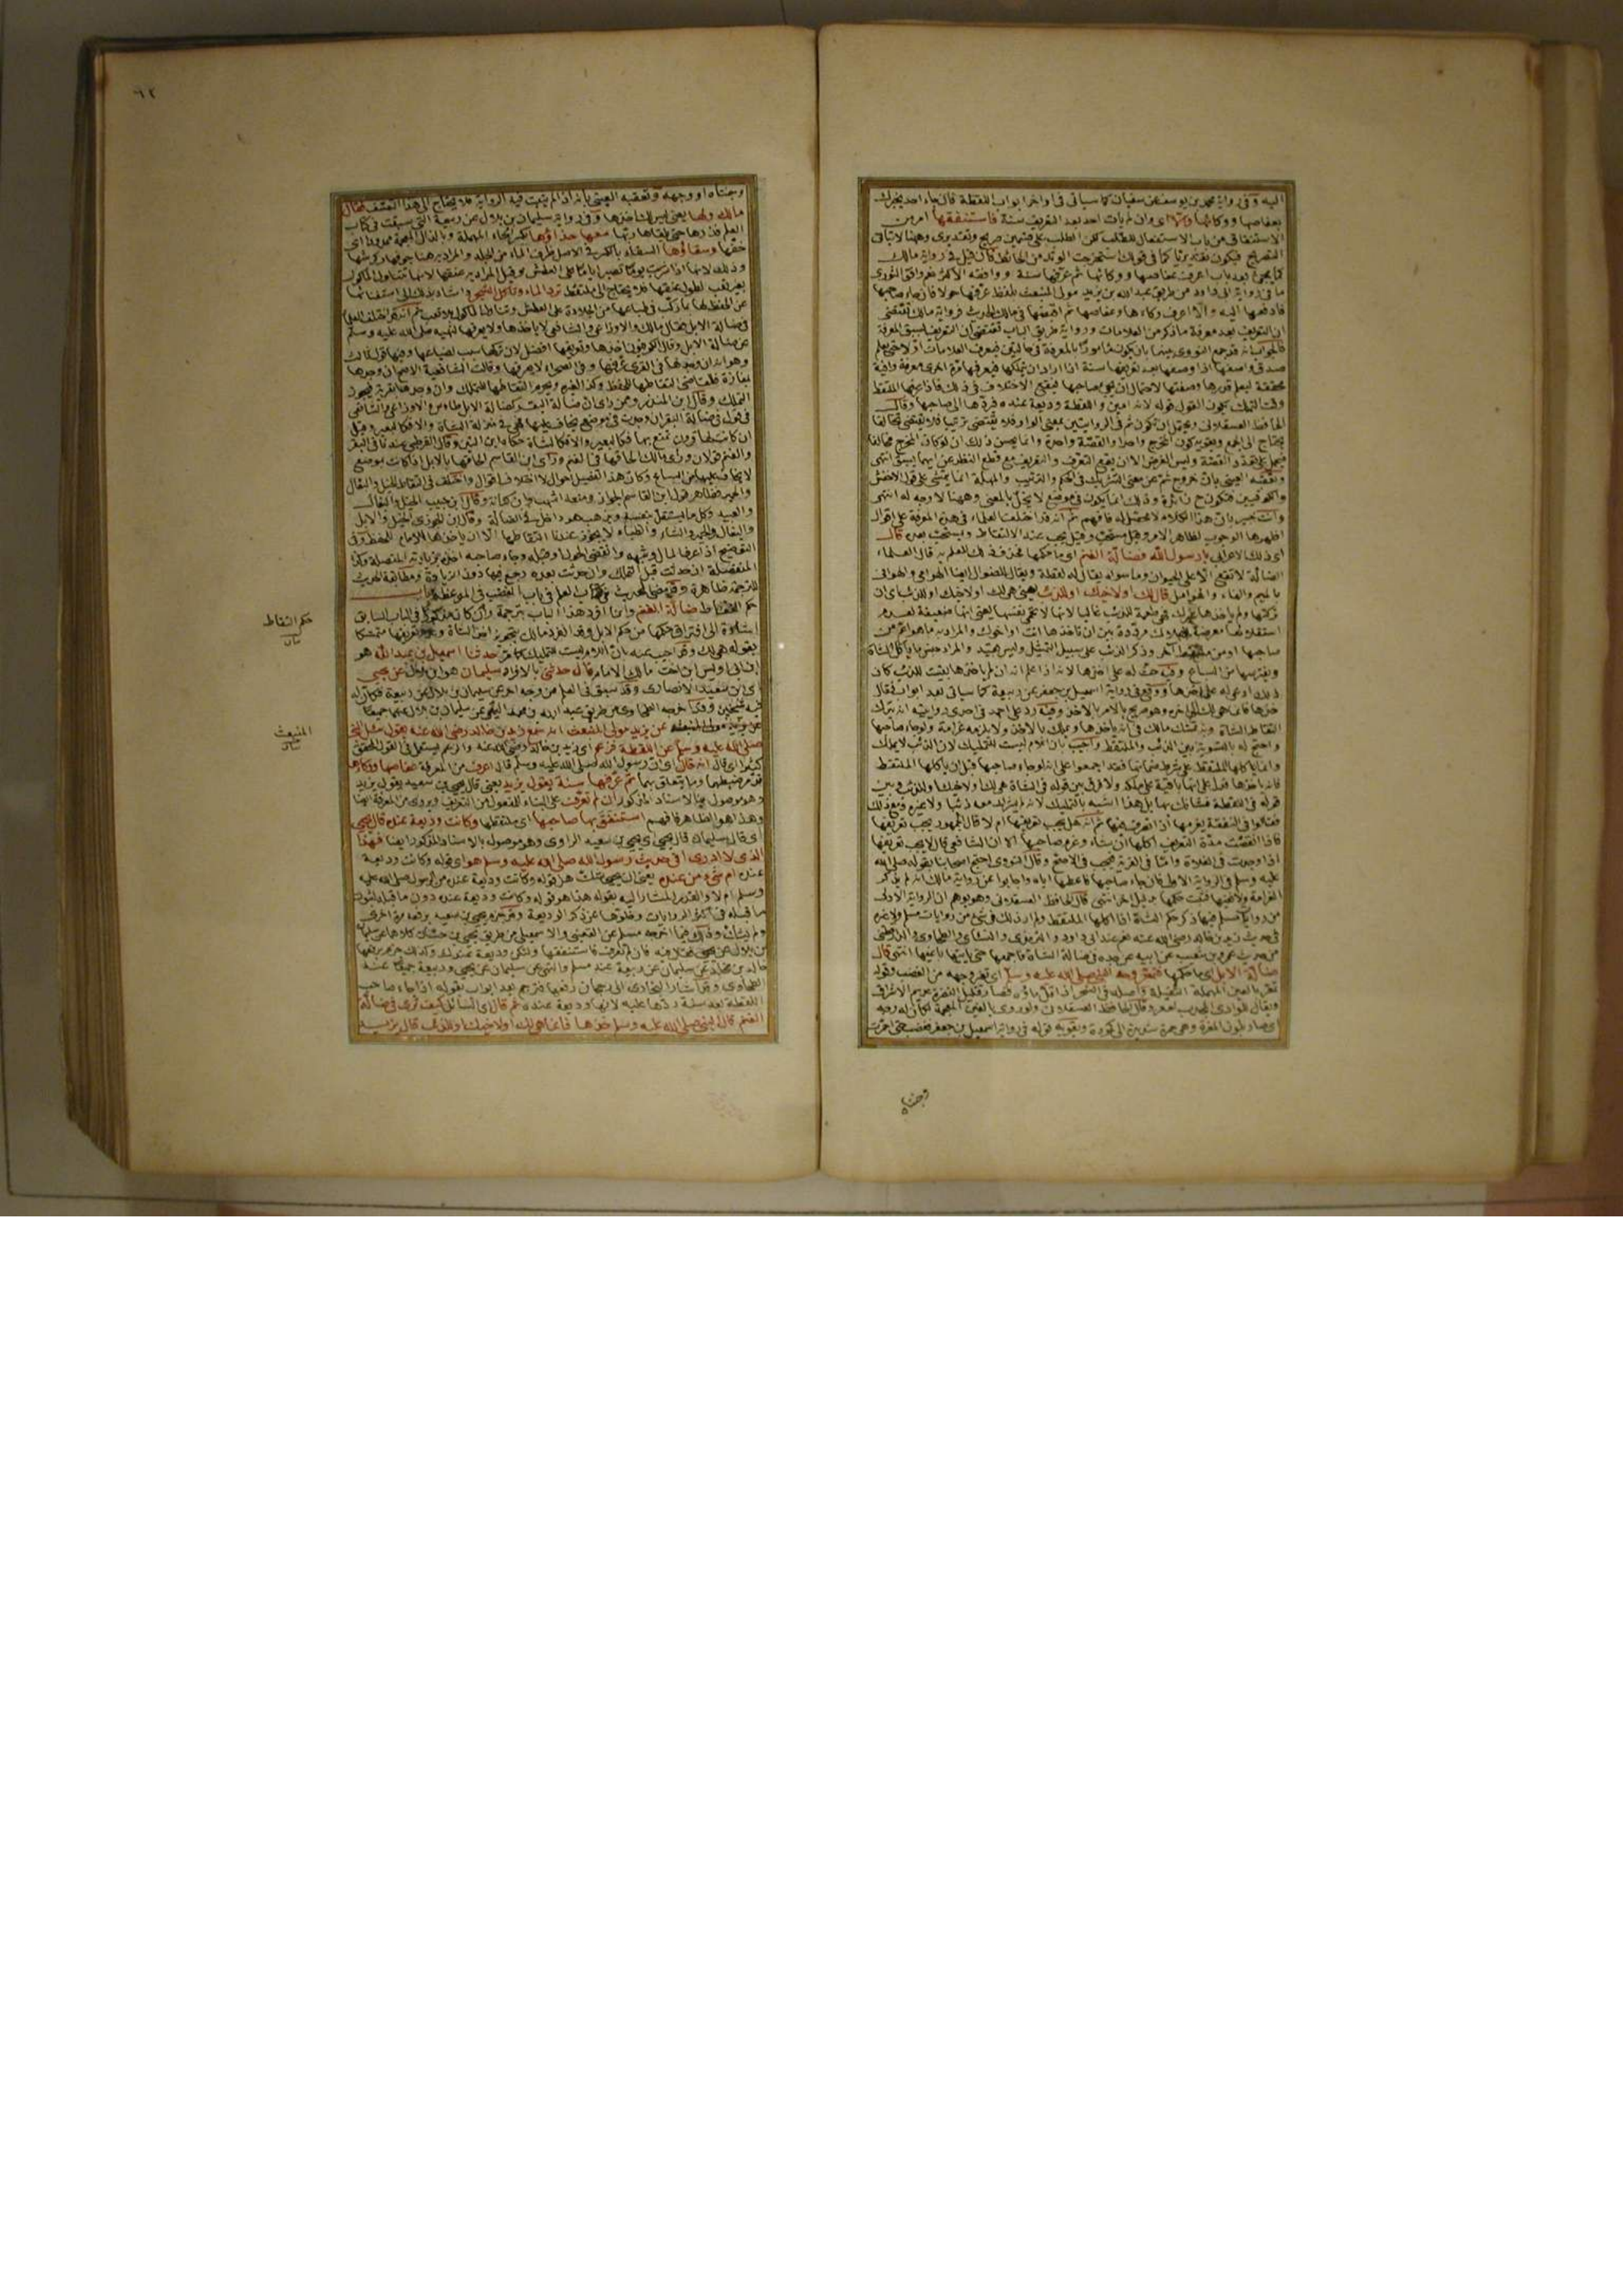 اليه وفى رواية محمد بن يوسف عن سفيان كما سياتى فى اواخر ابواب اللقطة فان جاء احد يخبرك
بعفاصها ووكائها والا اى وان لم يات احد بعد التعريف سنة فاستنفقها امر من
الاستنفاق من باب الاستفعال للطلب لكن الطلب على قسمين صريح وتقديرى وههنا لا يتاتى
التصريح فيكون تقديريا كما فى قولك استخرجت الوتد من الحائط فان قيل فى رواية مالك
كما يجئ بعد باب اعرف عفاصها ووكائها ثم عرفها سنة ووافقه الاكثر نعم وافق الثورى
ما فى رواية ابى داود من طريق عبد الله بن يزيد مولى المنبعث بلفظ عرفها حولا فان جاء صاحبها
فادفعها اليه والا اعرف وكاءها وعفاصها ثم اقبضها فى مالك الحديث فرواية مالك تقتضى
ان التعريف بعد معرفة ما ذكر من العلامات ورواية طريق الباب تقتضى ان التعريف يسبق المعرفة
فالجواب انه قد جمع النووى بينهما بان يكون مامورا بالمعرفة فى حالتين فيعرف العلامات اول
صدق واصفها اذا وصفها ثم بعد تعريفها سنة اذا اراد ان يتملكها فيعرفها مرة اخرى معرفة وافية
محققة ليعلم قدرها وصفتها لاحتمال ان يجئ صاحبها فيقع الاختلاف فى ذلك فاذا عرفها الملتقط
وقت التملك يكون القول قوله لانه امين واللقطة وديعة عنده فردها الى صاحبها وقال
الحافظ العسقلانى ويحتمل ان يكون ثم فى الروايتين بمعنى الواو فلا تقتضى ترتيبا فلا تقتضى تخالفا
يحتاج الى الجمع ويقويه كون المخرج واحدا والقصة واحدة وانما يحسن ذلك ان لو كان المخرج مختلفا
فيحمل على تعدد القصة وليس الغرض الا ان يقع التعرف والتعريف مع قطع النظر عن ايهما يسبق انتهى
وتعقبه العينى بان خروج ثم عن معنى التشريك فى الحكم والترتيب والمهلة انما يمشى على قول الاخفش
والكوفيين فتكون ح زائدة وذلك انما يكون فى موضع لا يخل بالمعنى وههنا لا وجه له انتهى
وانت خبير بان هذا الكلام لا محتمل له فافهم ثم انه قد اختلف العلماء فى هذه المعرفة على اقوال
اظهرها الوجوب لظاهر الامر وقيل مستحب وقيل يجب عند الالتقاط ويستحب بعده قال
اى ذلك الاعرابى يا رسول الله فضالة الغنم اى ما حكمها فحذف ذلك للعلم به قال العلماء
الضالة لا تقع الا على الحيوان وما سواه يقال له لقطة ويقال للضوال ايضا الهوامى والهوافى
بالميم والفاء والهوامل قال لك او لاخيك او للذئب يعنى هى لك او لاخيك او للذئب اى ان
صاحبها او من ملتقط اخر وذكر الذئب على سبيل التمثيل وليس بقيد والمراد جنس ما ياكل الشاة
ويفترسها من السباع وفيه حث له على اخذها لانه اذا علم انه ان لم ياخذها بقيت للذئب كان
ذلك ادعى له على اخذها ووقع فى رواية اسمعيل بن جعفر عن ربيعة كما سياتى بعد ابواب فقال
خذها فانما هى لك الى اخره وهو صريح بالامر بالاخذ وفيه رد على احمد فى احدى روايتيه انه يترك
التقاط الشاة وبه تمسك مالك فى انه ياخذها ويملك بالاخذ ولا يلزمه غرامة ولو جاء صاحبها
واحتج له بالتسوية بين الذئب والملتقط واجيب بان اللام ليست للتمليك لان الذئب لا يملك
وانما ياكلها الملتقط على شرط ضمانها فقد اجمعوا على انه لو جاء صاحبها قبل ان ياكلها الملتقط
فانه ياخذها فدل على انها باقية على ملكه ولا فرق بين قوله فى الشاة هى لك او لاخيك او للذئب وبين
قوله فى اللقطة فشانك بها بل هذا اشبه بالتمليك لانه لم يشرك معه ذئبا ولا غيره فمع ذلك
فقالوا فى النفقة يغرمها اذا تصرف فيها ثم انه هل يجب تعريفها ام لا قال الجمهور يجب تعريفها
فاذا انقضت مدة التعريف اكلها ان شاء وغرم صاحبها الا ان الشافعى قال لا يجب تعريفها
اذا وجدت فى الفلاة واما فى القرية فيجب فى الاصح وقال النووى احتج اصحابنا بقوله صلى الله
عليه وسلم فى الرواية الاولى فان جاء صاحبها فاعطها اياه واجابوا عن رواية مالك انه لم يذكر
الغرامة ولا نفيها فثبت حكمها بدليل اخر انتهى قال الحافظ العسقلانى وهو يوهم ان الرواية الاولى
من روايات مسلم فيها ذكر حكم الشاة اذا اكلها الملتقط ولم ار ذلك فى شئ من روايات مسلم ولا غيره
فى حديث زيد بن خالد رضى الله عنه نعم عند ابى داود والترمذى والنسائى والطحاوى والدارقطنى
من حديث عمرو بن شعيب عن ابيه عن جده فى ضالة الشاة فاجمعها حتى ياتيها باغيها انتهى قال
ضالة الابل اى ما حكمها فتمعر وجه النبى صلى الله عليه وسلم اى تغير وجهه من الغضب وقوله
تمعر بالعين المهملة الثقيلة واصله فى الشجر اذا قل ماؤه فصار قليل النضرة عديم الاشراق
ويقال للوادى المجدب امعر وقال الحافظ العسقلانى ولو روى بالغين المعجمة لكان له وجه
اى صار بلون المغرة وهى حمرة شديدة الى كدورة ويقويه قوله فى رواية اسمعيل بن جعفر فغضب حتى احمرت
وجنتاه
٦٢
وجنتاه او وجهه وتعقبه العينى بانه اذا لم يثبت فيه الرواية فلا يحتاج الى هذا التعسف فقال
مالك ولها يعنى ليس لك اخذها وفى رواية سليمان بن بلال عن ربيعة التى سبقت فى كتاب
العلم فذرها حتى يلقاها ربها معها حذاؤها بكسر الحاء المهملة وبالذال المعجمة ممدودا اى
خفها وسقاؤها السقاء بالكسر فى الاصل ظرف الماء من الجلد والمراد به هنا جوفها وكرشها
وذلك لانها اذا شربت يوما تصبر اياما على العطش وقيل المراد به عنقها لانها تتناول الماكول
بغير تعب لطول عنقها فلا يحتاج الى ملتقط ترد الماء وتاكل الشجر واشار بذلك الى استغنائها
عن الحفظ لها بما ركب فى طباعها من الجلادة على العطش وتناول الماكول بلا تعب ثم انه قد اختلف العلماء
فى ضالة الابل فقال مالك والاوزاعى والشافعى لا ياخذها ولا يعرفها لنهيه صلى الله عليه وسلم
عن ضالة الابل وقال الكوفيون اخذها وتعريفها افضل لان تركها سبب لضياعها وفيها قول ثالث
وهو انه ان وجدها فى القرى عرفها وفى الصحراء لا يعرفها وقالت الشافعية الاصح ان وجدها
بمفازة فللقاضى التقاطها للحفظ وكذا لغيره ويحرم التقاطها للتملك وان وجدها بقرية فيجوز
التملك وقال ابن المنذر وممن راى ان ضالة البقر كضالة الابل طاوس والاوزاعى والشافعى
والغنم قولان وراى مالك الحاقها فى الغنم وراى ابن القاسم الحاقها بالابل اذا كانت بموضع
لا يخاف عليها من السباع وكان هذا تفصيل احوال لا اختلاف اقوال واختلف فى التقاط الخيل والبغال
والحمير فظاهر قول ابن القاسم الجواز ومنعه اشهب وابن كنانة وقال ابن حبيب الخيل والبغال
والعبيد وكل ما يستقل بنفسه ويذهب هو داخل فى الضالة وقال ابن الجوزى الخيل والابل
والبغال والحمير والشاء والظباء لا يجوز عندنا التقاطها الا ان ياخذها الامام للحفظ وفى
المنفصلة ان حدثت قبل التملك وان حدثت بعده رجع فيها دون الزيادة ومطابقة الحديث
للترجمة ظاهرة وقد مضى الحديث فى كتاب العلم فى باب الغضب فى الموعظة باب
حكم التقاط ضالة الغنم وانما افرد هذا الباب بترجمة وان كان مذكورا فى الباب السابق
بقوله هى لك وقد اجيب عنه بان اللام ليست للتمليك كما مر حدثنا اسمعيل بن عبد الله هو
ابن ابى اويس ابن اخت مالك الامام قال حدثنى بالافراد سليمان هو ابن بلال عن يحيى
اى ابن سعيد الانصارى وقد سبق فى العلم من وجه اخر عن سليمان بن بلال عن ربيعة فكان له
فيه شيخين وقد اخرجه الطحاوى من طريق عبد الله بن محمد الفهمى عن سليمان بن بلال عنهما جميعا
عن يزيد مولى المنبعث انه سمع زيد بن خالد رضى الله عنه يقول سئل النبى
صلى الله عليه وسلم عن اللقطة فزعم اى زيد بن خالد رضى الله عنه والزعم يستعمل فى القول المحقق
كثيرا اى قال انه قال اى ان رسول الله صلى الله عليه وسلم قال اعرف من المعرفة عفاصها ووكاءها
قد مر ضبطهما وما يتعلق بهما ثم عرفها سنة يقول يزيد يعنى قال يحيى بن سعيد يقول يزيد
وهو موصول بالاسناد المذكور ان لم تعرف على البناء للمفعول من التعريف ويروى من المعرفة ايضا
وهذا هو الظاهر فافهم استنفق بها صاحبها اى ملتقطها وكانت وديعة عنده قال يحيى
اى قال سليمان قال يحيى اى يحيى بن سعيد الراوى وهو موصول بالاسناد المذكور ايضا فهذا
الذى لا ادرى افى حديث رسول الله صلى الله عليه وسلم هو اى قوله وكانت وديعة
عنده ام شئ من عنده يعنى ان يحيى شك هل قوله وكانت وديعة عنده من رسول صلى الله عليه
وسلم ام لا والقدر المشار اليه بقوله هذا هو قوله وكانت وديعة عنده دون ما قبله لثبوت
ما قبله فى اكثر الروايات وخلوها عن ذكر الوديعة وقد جزم يحيى بن سعيد برفعه مرة اخرى
ولم يشك وذلك فيما اخرجه مسلم عن القعنبى والاسمعيلى من طريق يحيى بن حسان كلاهما عن سليمان
بن بلال عن يحيى فقالا فيه فان لم تعرف فاستنفقها ولتكن وديعة عندك وكذلك جزم برفعها
خالد بن مخلد عن سليمان عن ربيعة عند مسلم والفهمى عن سليمان عن يحيى وربيعة جميعا عند
الطحاوى وقد اشار البخارى الى رجحان رفعها فترجم بعد ابواب بقوله اذا جاء صاحب
اللقطة بعد سنة ردها عليه لانها وديعة عنده ثم قال اى السائل كيف ترى فى ضالة
الغنم قال النبى صلى الله عليه وسلم خذها فانما هى لك او لاخيك او للذئب قال يزيد
حكم التقاط
المنبعث